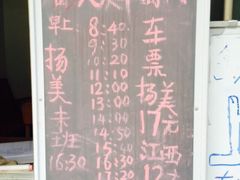 早
扬美末班
16:30
8:40
9:30
10:20
11:10
12:00
13:00
14:00
14:50
15:40
16:30
车票
扬美
17元
江西
12